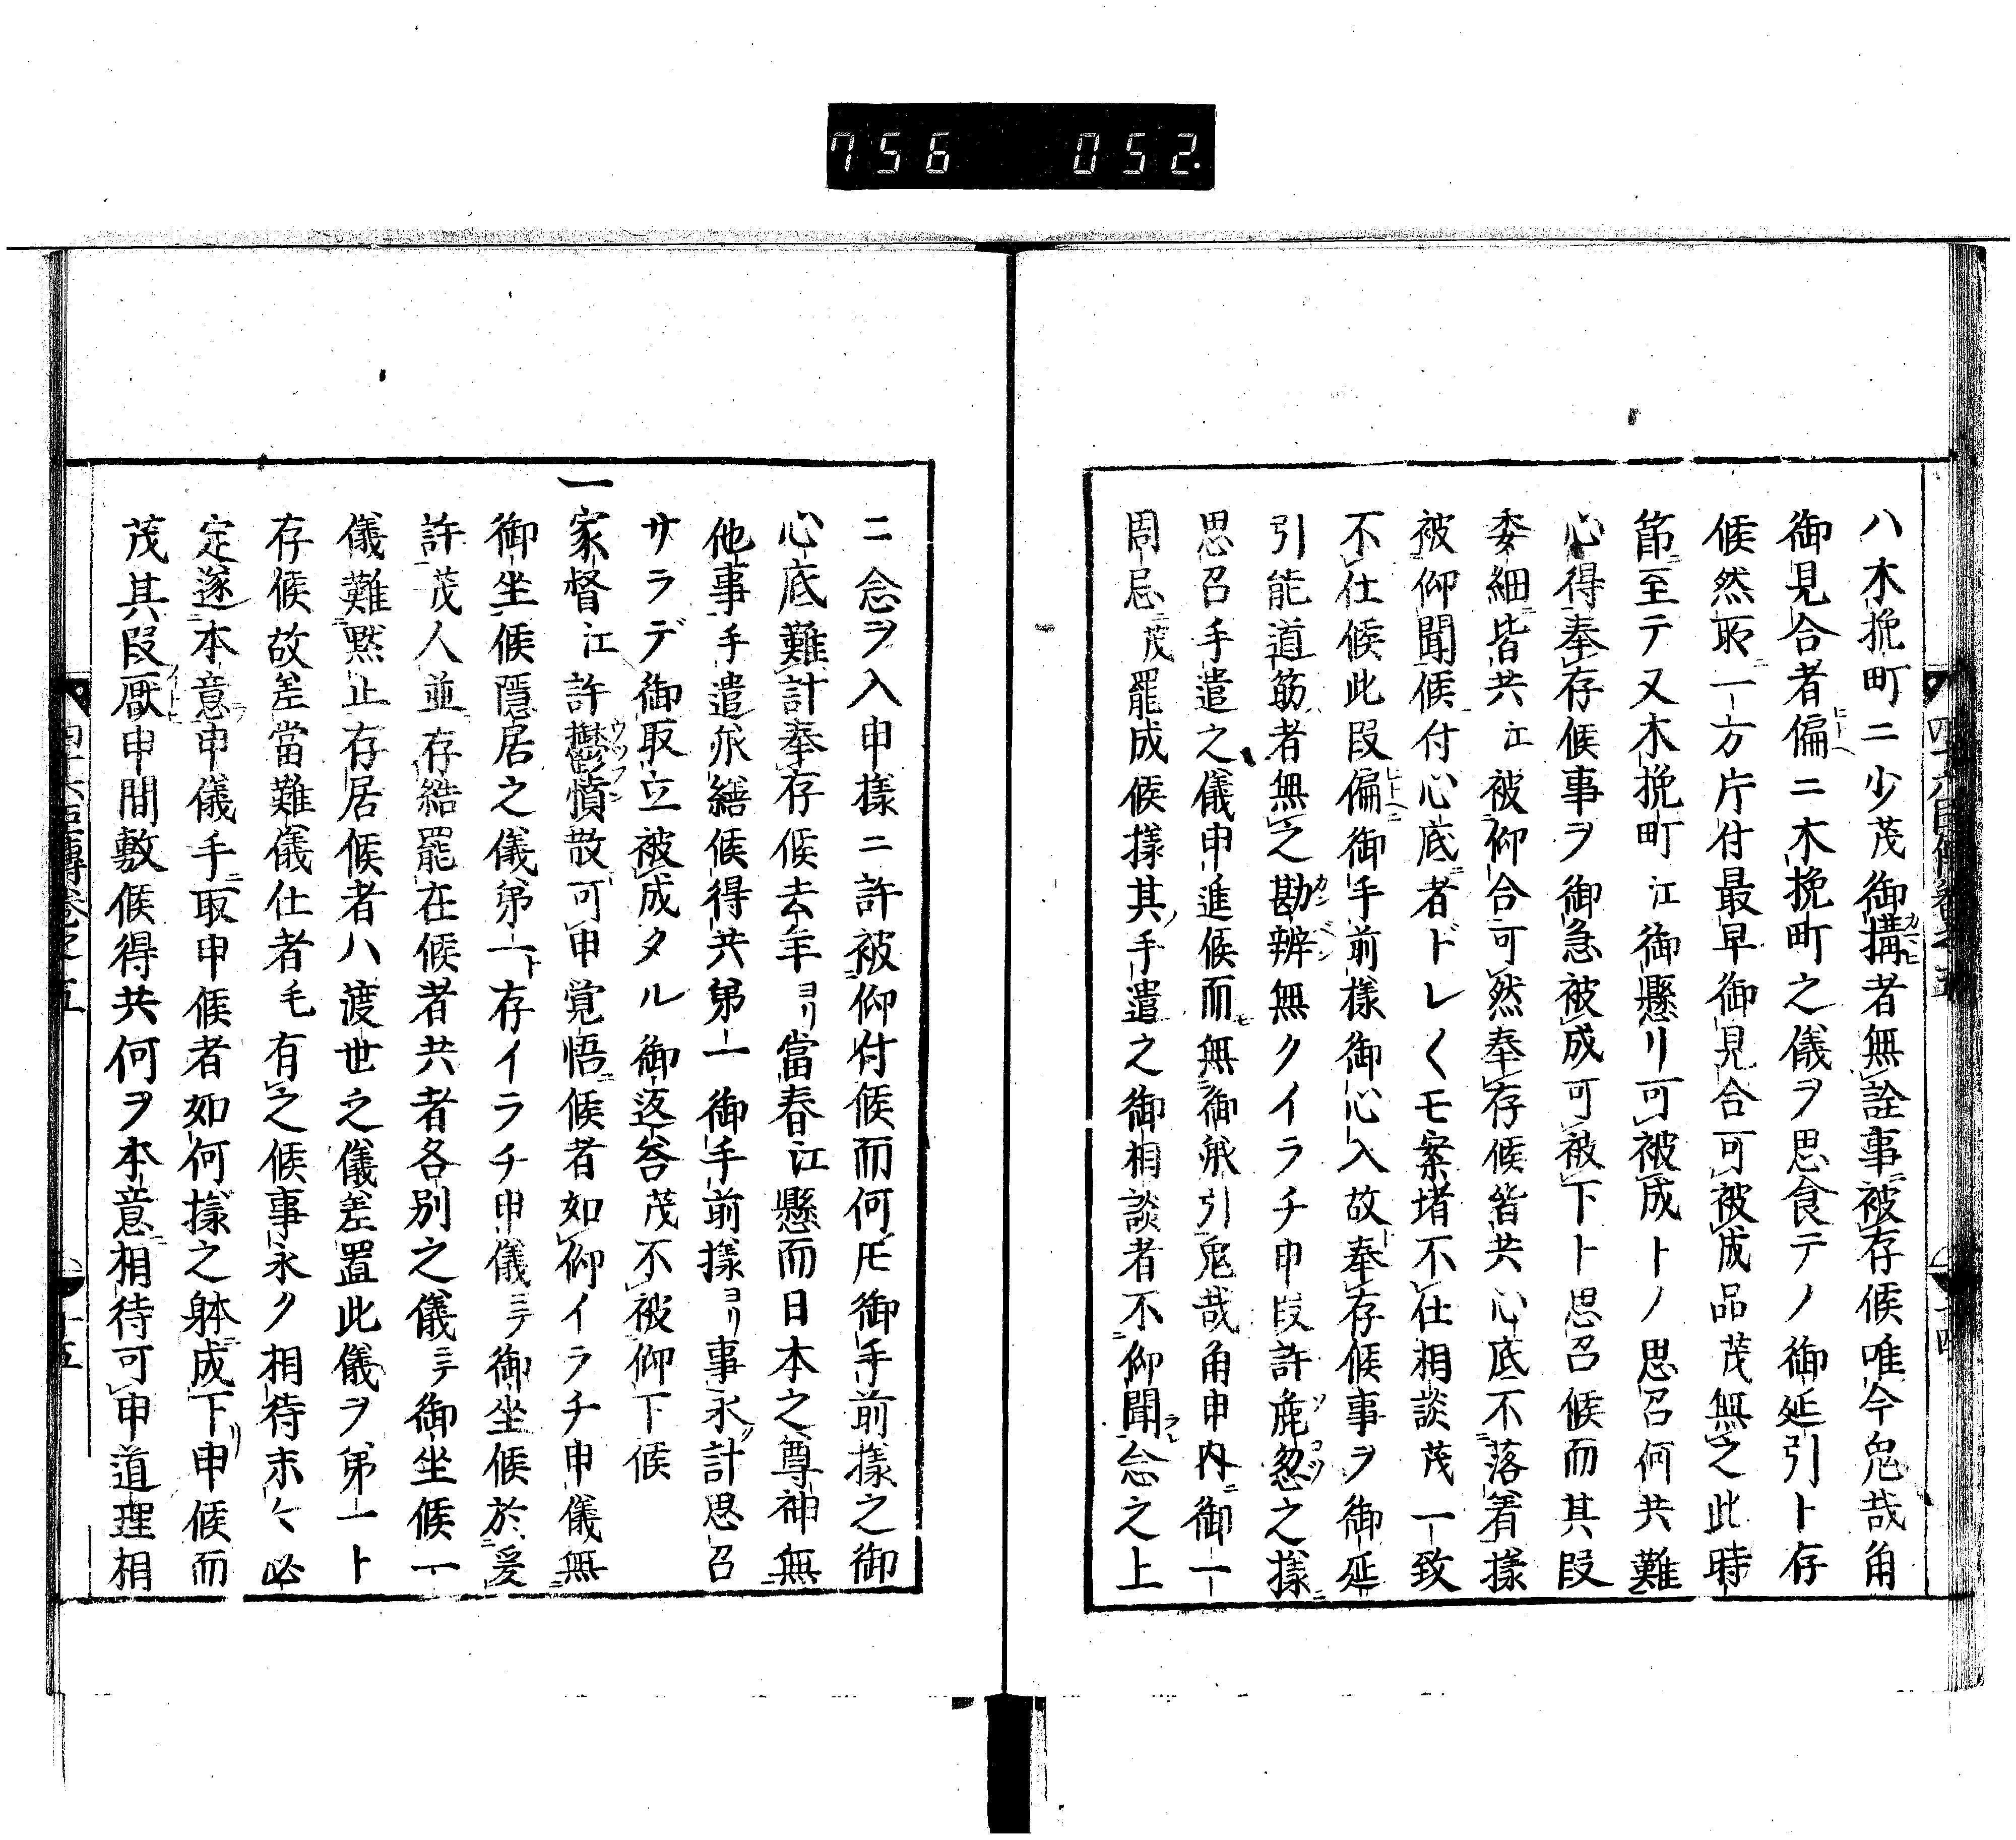 756 052.
ハ木挽町ニ少茂御搆者無詮事被存候唯今鬼哉角
御見合者偏ニ木挽町之儀ヲ思食テノ御延引ト存
候然取一方片付最早御見合可被成品茂無之此時
節至テ又木挽町江御懸リ可被成トノ思召何共難
心得奉存候事ヲ御急被成可被下ト思召候而其段
委細皆共江被仰合可然奉存候皆共心底不落着樣
被仰聞候付心底者ドレ〱モ案堵不仕相談茂一致
不仕候此段偏御手前樣御心入故奉存候事ヲ御延
引能道筋者無之勘辨無クイラチ申段許麁怱之樣
思召手遣之儀申進候而無御承引鬼哉角申内御一
周忌茂罷成候樣其手遣之御相談者不仰聞念之上
ニ念ヲ入申樣ニ許被仰付候而何𪜈御手前樣之御
心底難計奉存候去年ヨリ當春江懸而日本之尊神無
他事手遣承繕候得共第一御手前樣ヨリ事永計思召
サラデ御取立被成タル御返答茂不被仰下候
一家督江許鬱憤散可申覚悟候者如仰イラチ申儀無
御坐候隱居之儀第一存イラチ申儀ニテ御坐候於爰
許茂人並存結罷在候者共者各別之儀ニテ御坐候一
儀難黙止存居候者ハ渡世之儀差置此儀ヲ第一ト
存候故差當難儀仕者モ有之候事永ク相待末々必
定遂本意申儀手取申候者如何樣之躰成下申候而
茂其段厭申間敷候得共何ヲ本意相待可申道理相